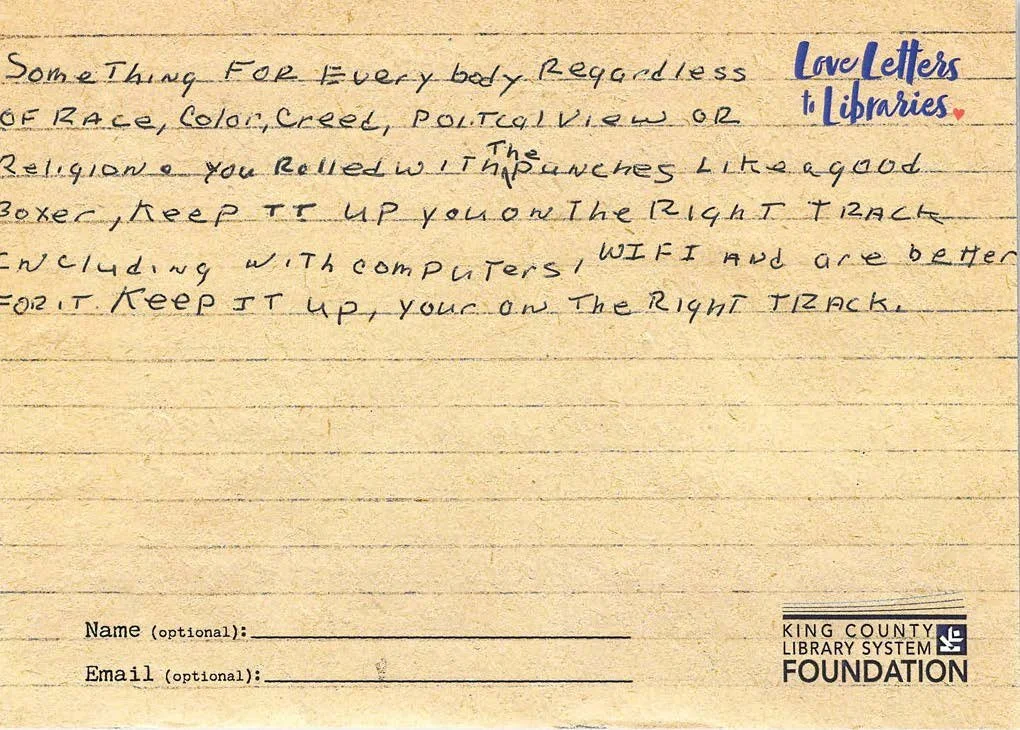 SomeThing FOR Every body Regardless
OF RACe, Color, Creed, POLITCal View OR
Religion. you Rolled wITh The punches Like a good
Boxer, Keep IT UP you on The RIghT TRACK
Including wITh compuTers, WIFI And are better
FOR IT. Keep IT up, your on The RIghT TRACK.
Love Letters
to Libraries
Name (optional):
Email (optional):
KING COUNTY
LIBRARY SYSTEM
FOUNDATION